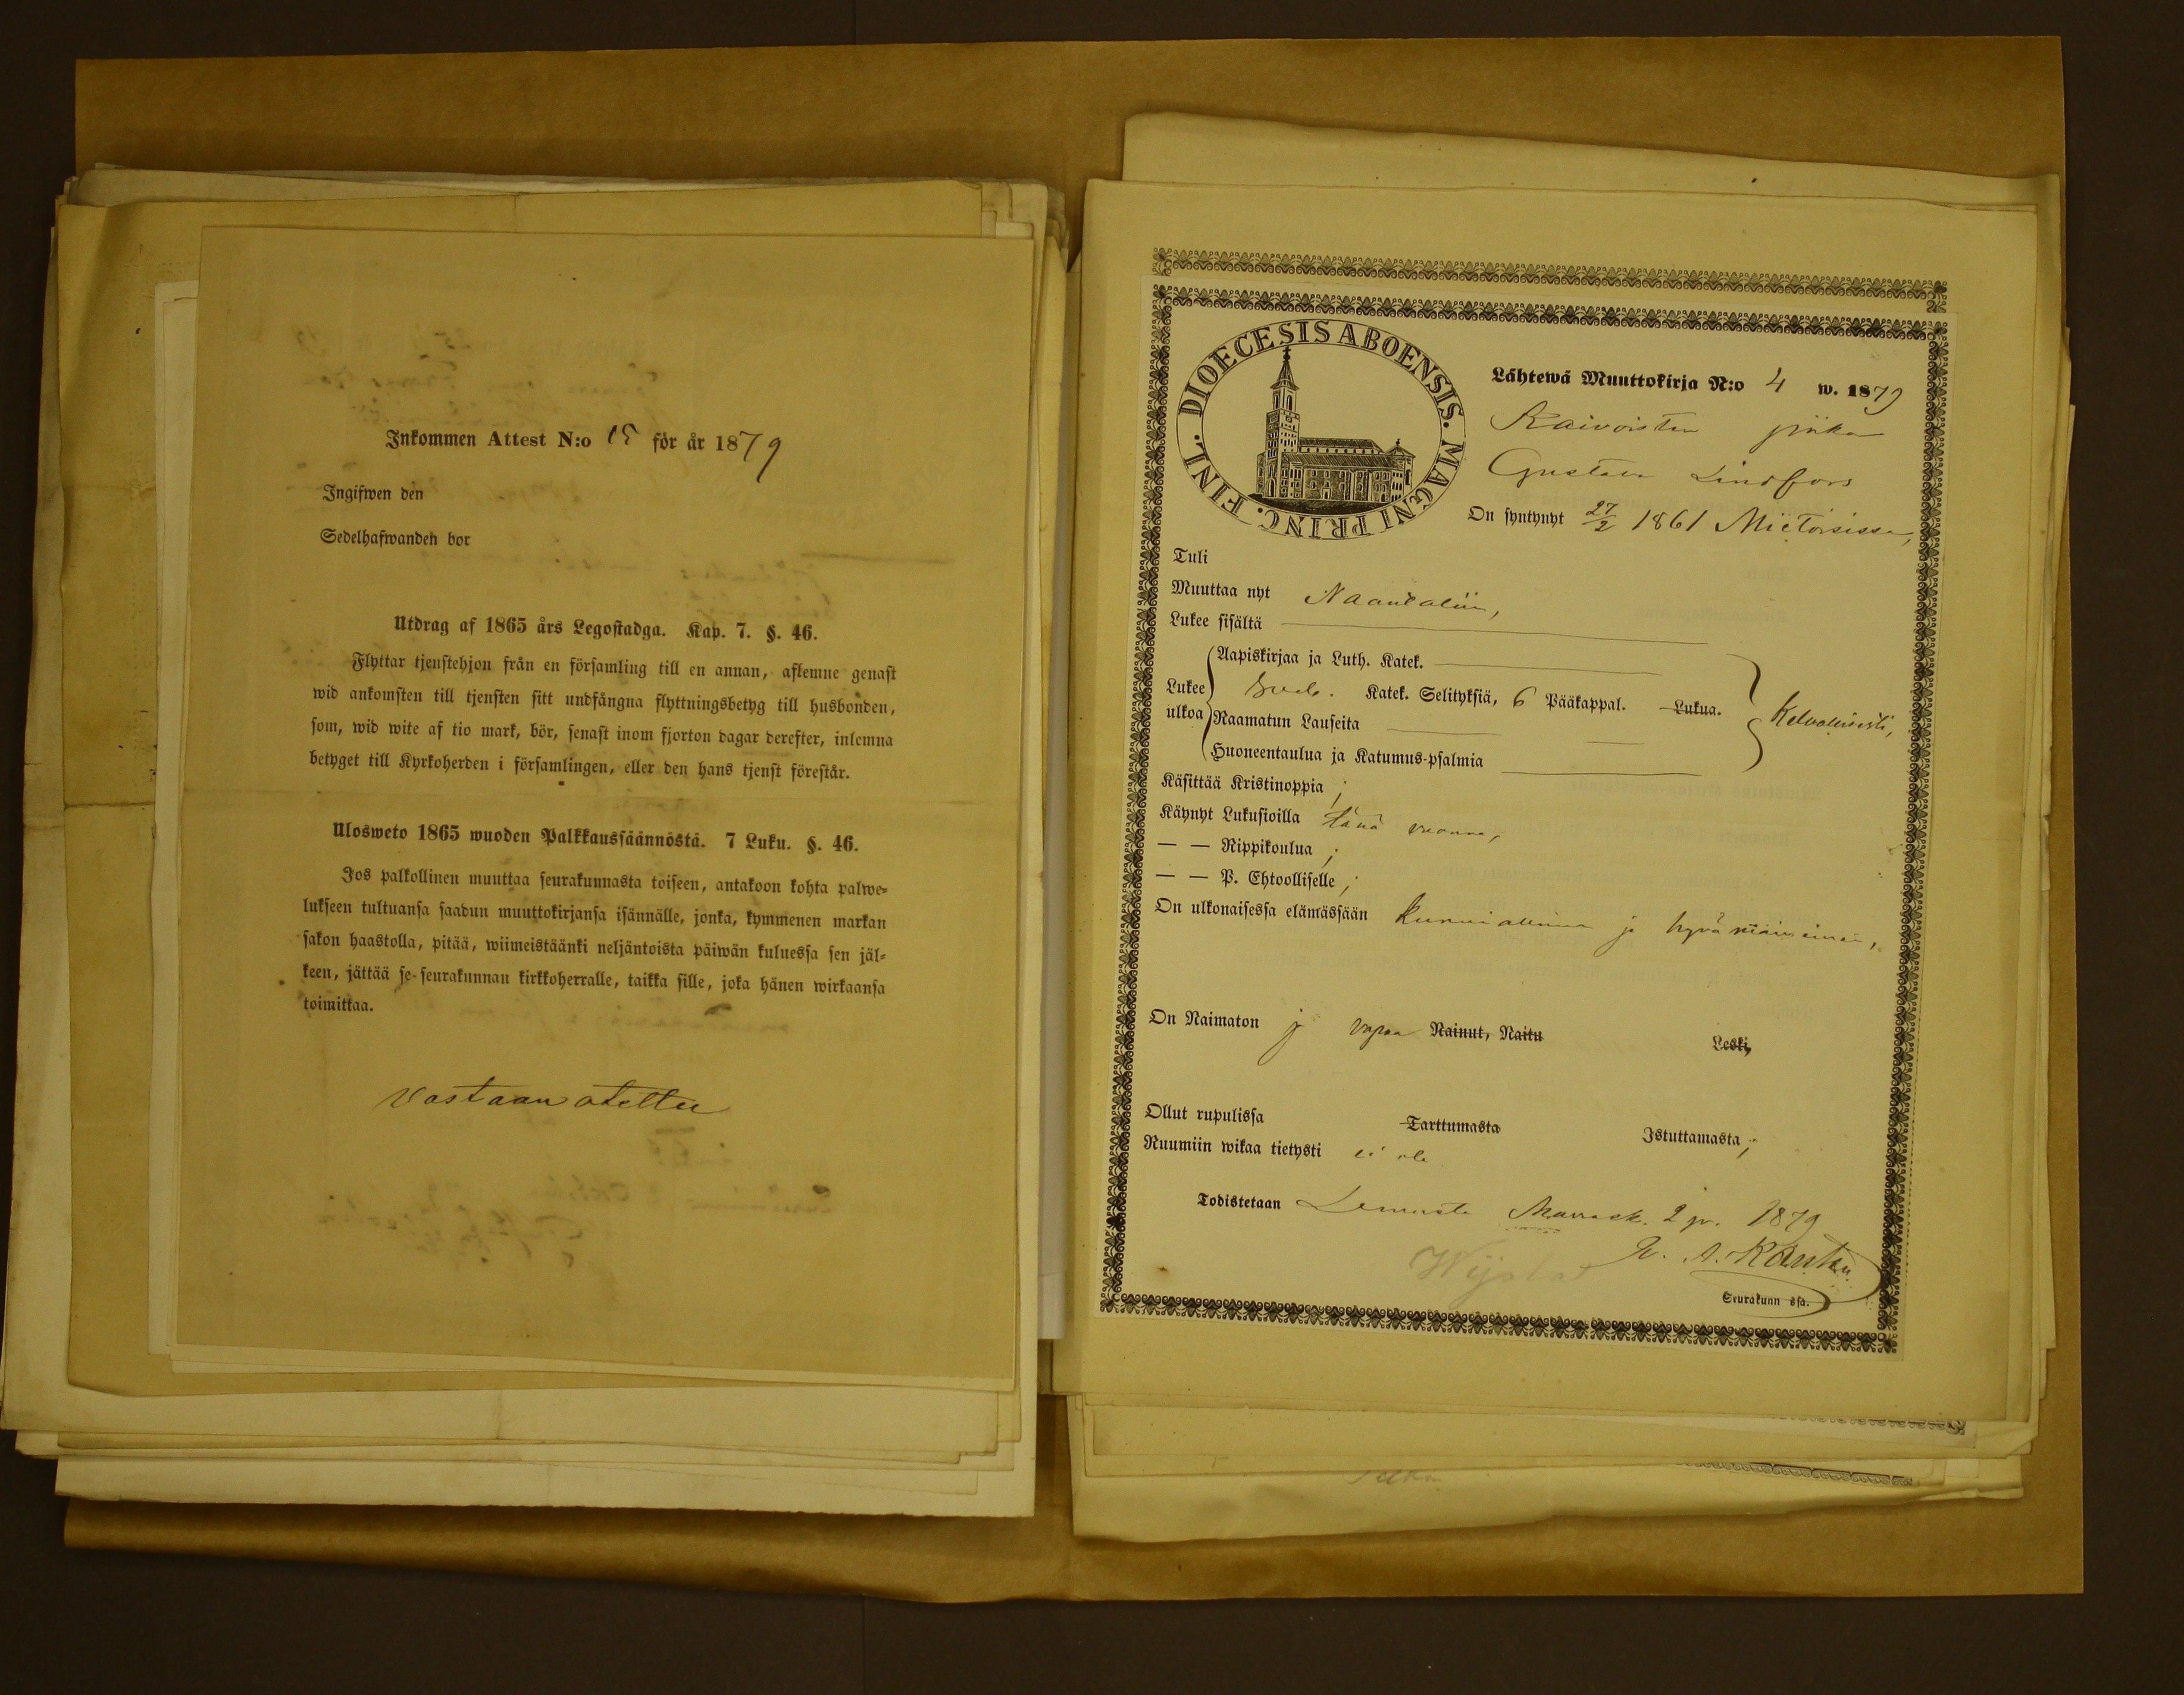 Inkommen Attest N:o 15 för år 1879
Ingifwen den
Sedelhafwanden bor
Utdrag af 1865 års Legostadga. Kap. 7. §. 46.
Flyttar tjenstehjon från en församling till en annan, aflemne genast
wid ankomsten till tjensten sitt undfångna flyttningsbetyg till husbonden,
som, wid wite af tio mark, bör, senast inom fjorton dagar derefter, inlemna
betyget till Kyrkoherden i församlingen, eller den hans tjenst förestår.
Ulosweto 1865 wuoden Palkkaussäännöstä. 7 Luku. §. 46.
Jos palkollinen muuttaa seurakunnasta toiseen, antakoon kohta palwe=
lukseen tultuansa saadun muuttokirjansa isännälle, jonka, kymmenen markan
sakon haastolla, pitää, wiimeistäänki neljäntoista päiwän kuluessa sen jäl=
keen, jättää se seurakunnan kirkkoherralle, taikka sille, joka hänen wirkaansa
toimittaa.
Vastaan otettu
DIOECESIS ABOENSIS. MAGNI PRINC. FINL.
Lähtewä Muuttokirja N:o 4 w. 1879
Kaivoisten
Gustav Lindfors
On syntynyt 27/2 1861 Mietoisissa,
Tuli
Muuttaa nyt Naantaliin,
Lukee sisältä
Aapiskirjaa ja Luth. Katek.
Lukee ulkoa
Sveb. Katek. Selityksiä, 6 Pääkappal. Lukua. Kelvollisesti,
Raamatun Lauseita
Huoneentaulua ja Katumus-psalmia
Käsittää Kristinoppia ;
Käynyt Lukusioilla tänä vuonna,
— — Rippikoulua ;
— — P. Ehtoolliselle ;
On ulkonaisessa elämässään kunniallinen ja hyvämaineinen,
On Naimaton ja vapaa Nainut, Naitu Leski,
Ollut rupulissa Tarttumasta Istuttamasta ;
Ruumiin wikaa tietysti ei ole
Todistetaan Lemusta Marrask. 2 p. 1879
Seurakunn ssa.